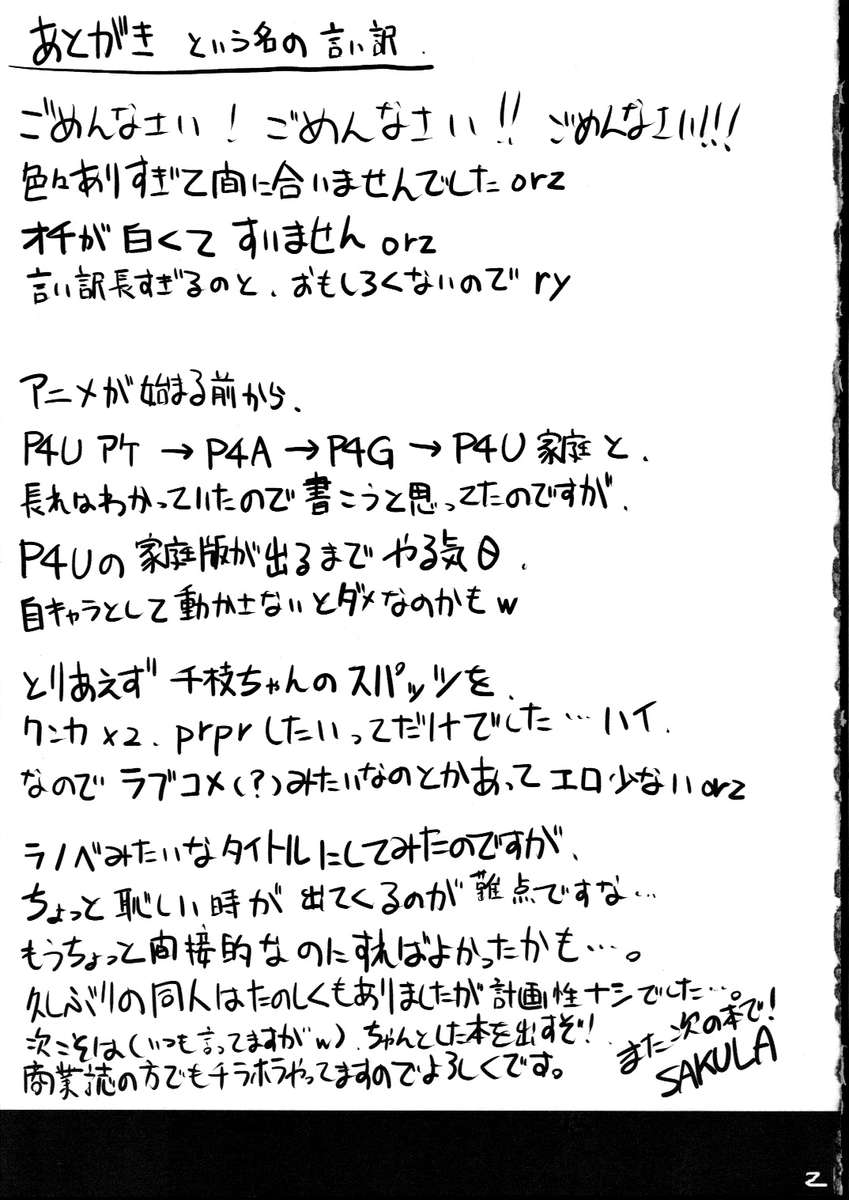 あとがき という名の 言い訳.
ごめんなさい! ごめんなさい!! ごめんなさい!!!
色々ありすぎて間に合いませんでした orz
オチが白くて すいません orz
言い訳長すぎるのと、おもしろくないので ry
アニメが始まる前から、
P4U アケ → P4A → P4G → P4U 家庭 と、
長れはわかっていたので 書こうと思ってたのですが、
P4Uの 家庭版が出るまで やる気θ.
自キャラとして動かさないとダメなのかも w
とりあえず 千枝ちゃんの スパッツを、
クンカ×2、prpr したいってだけでした…ハイ.
なので ラブコメ(?)みたいなのとかあって エロ少ない orz
ラノベみたいなタイトルにしてみたのですが、
ちょっと 恥しい時が 出てくるのが 難点ですな…
もうちょっと間接的なのにすればよかったかも…。
久しぶりの同人はたのしくもありましたが計画性ナシでした…。
次こそは(いつも言ってますがw)、ちゃんとした本を出すぞ!
商業誌の方でもチラホラやってますのでよろしくです。
また次の本で!
SAKULA
2